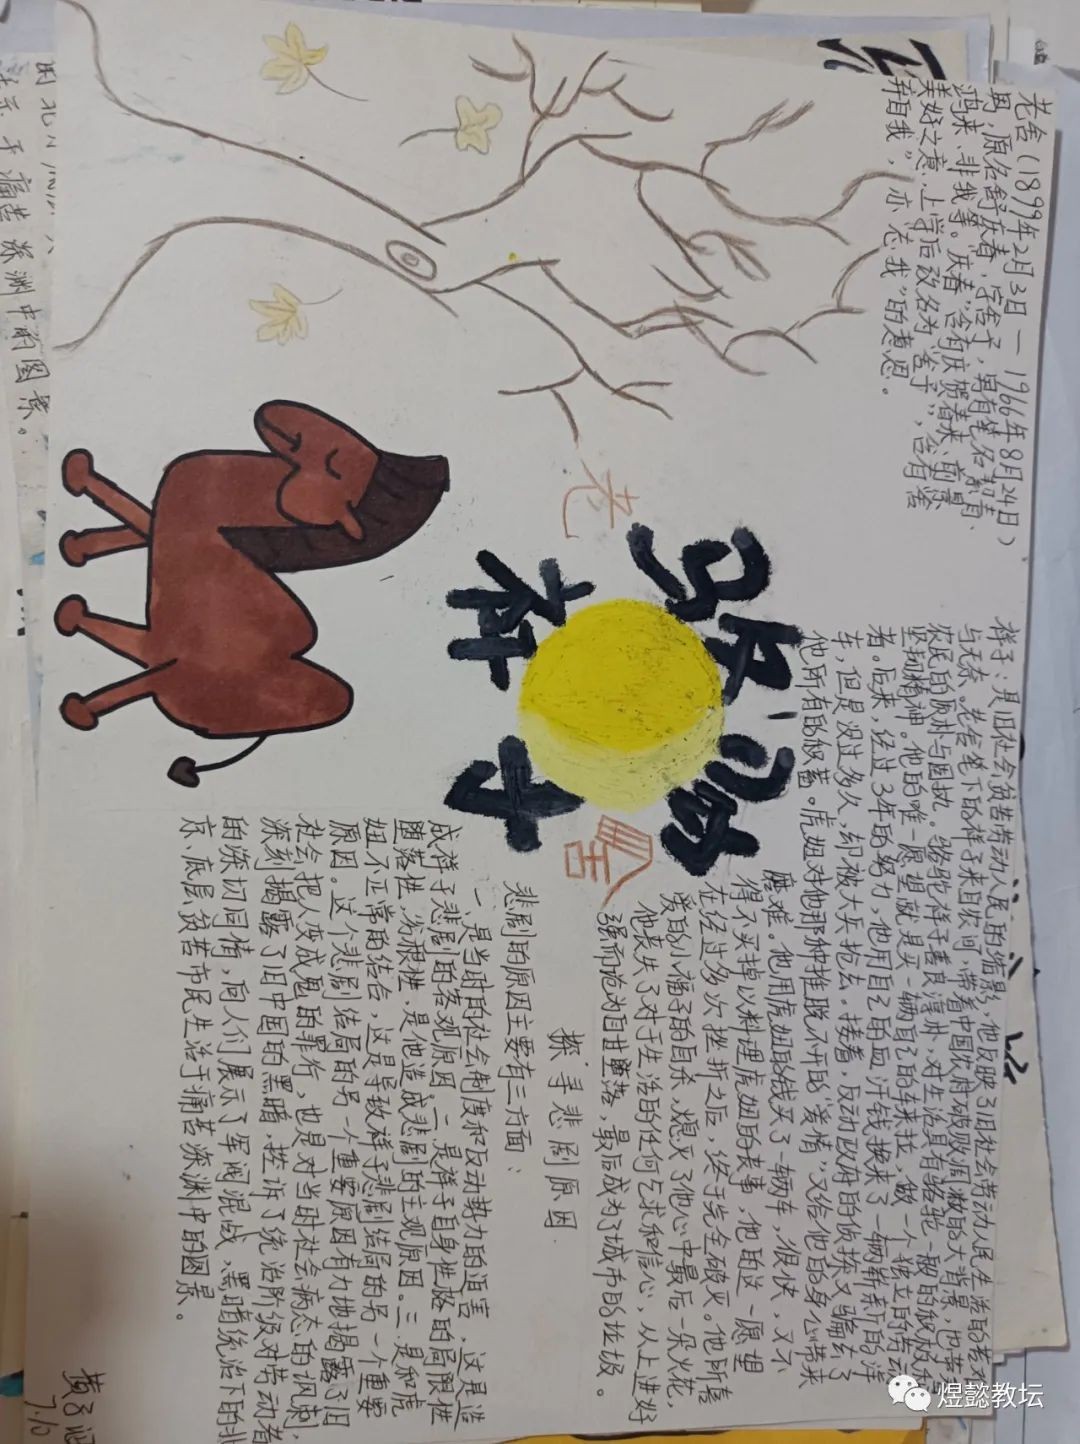 老舍（1899年2月3日一1966年8月24日）
男，原名舒庆春，字舍予，另有笔名絜青、
鸿来、非我等。庆春”含有庆贺春来、前景
美好之意，上学后改名为“舍予”，含有舍
弃自我”，亦“忘我”的意思。
老
骆驼
祥子
舍
祥子：是旧社会贫苦劳动人民的缩影，他反映了旧社会劳动人民生活的苦难
与无奈。老舍笔下的祥子来自农间，带着中国农村破败凋敝的大背景，也带着
农民的质朴与固执。骆驼祥子善良淳朴，对生活具有骆驼一般的积极和
坚韧精神。他的唯一愿望就是买一辆自己的车来拉，做一个独立的劳动
者。后来，经过3年的努力，他用自己的血汗钱换来了一辆崭新的洋
车，但是没过多久，却被大兵抢去。接着，反动政府的侦探又骗去了
他所有的积蓄。虎妞对他那种推脱不开的“爱情”又给他的身心带来
磨难。他用虎妞的钱买了一辆车，很快，又不
得不买掉以料理虎妞的丧事，他的这一愿望
在经过多次挫折之后，终于完全破灭。他所喜
爱的小福子的自杀，熄灭了他心中最后一朵火花，
他丧失了对于生活的任何乞求和信心，从上进好
强而沦为自甘堕落，最后成为了城市的垃圾。
探寻悲剧原因
悲剧的原因主要有三方面：
一、是当时的社会制度和反动势力的迫害，这是造
成祥子悲剧的客观原因。二是祥子自身性格的局限性
堕落性，劣根性，是他造成悲剧的主观原因。三是和虎
妞不正常的结合，这是导致祥子悲剧结局的另一个重要
原因。这个悲剧结局的另一个重要原因有力地揭露了旧
社会把人变成鬼的罪行，也是对当时社会病态的讽刺，
深刻揭露了旧中国的黑暗，控诉了统治阶级对劳动者
的深切同情，向人们展示了军阀混战、黑暗统治下的北
京、底层贫苦市民生活于痛苦深渊中的图景。
7.10
于痛苦深渊中的图景。
煜懿教坛